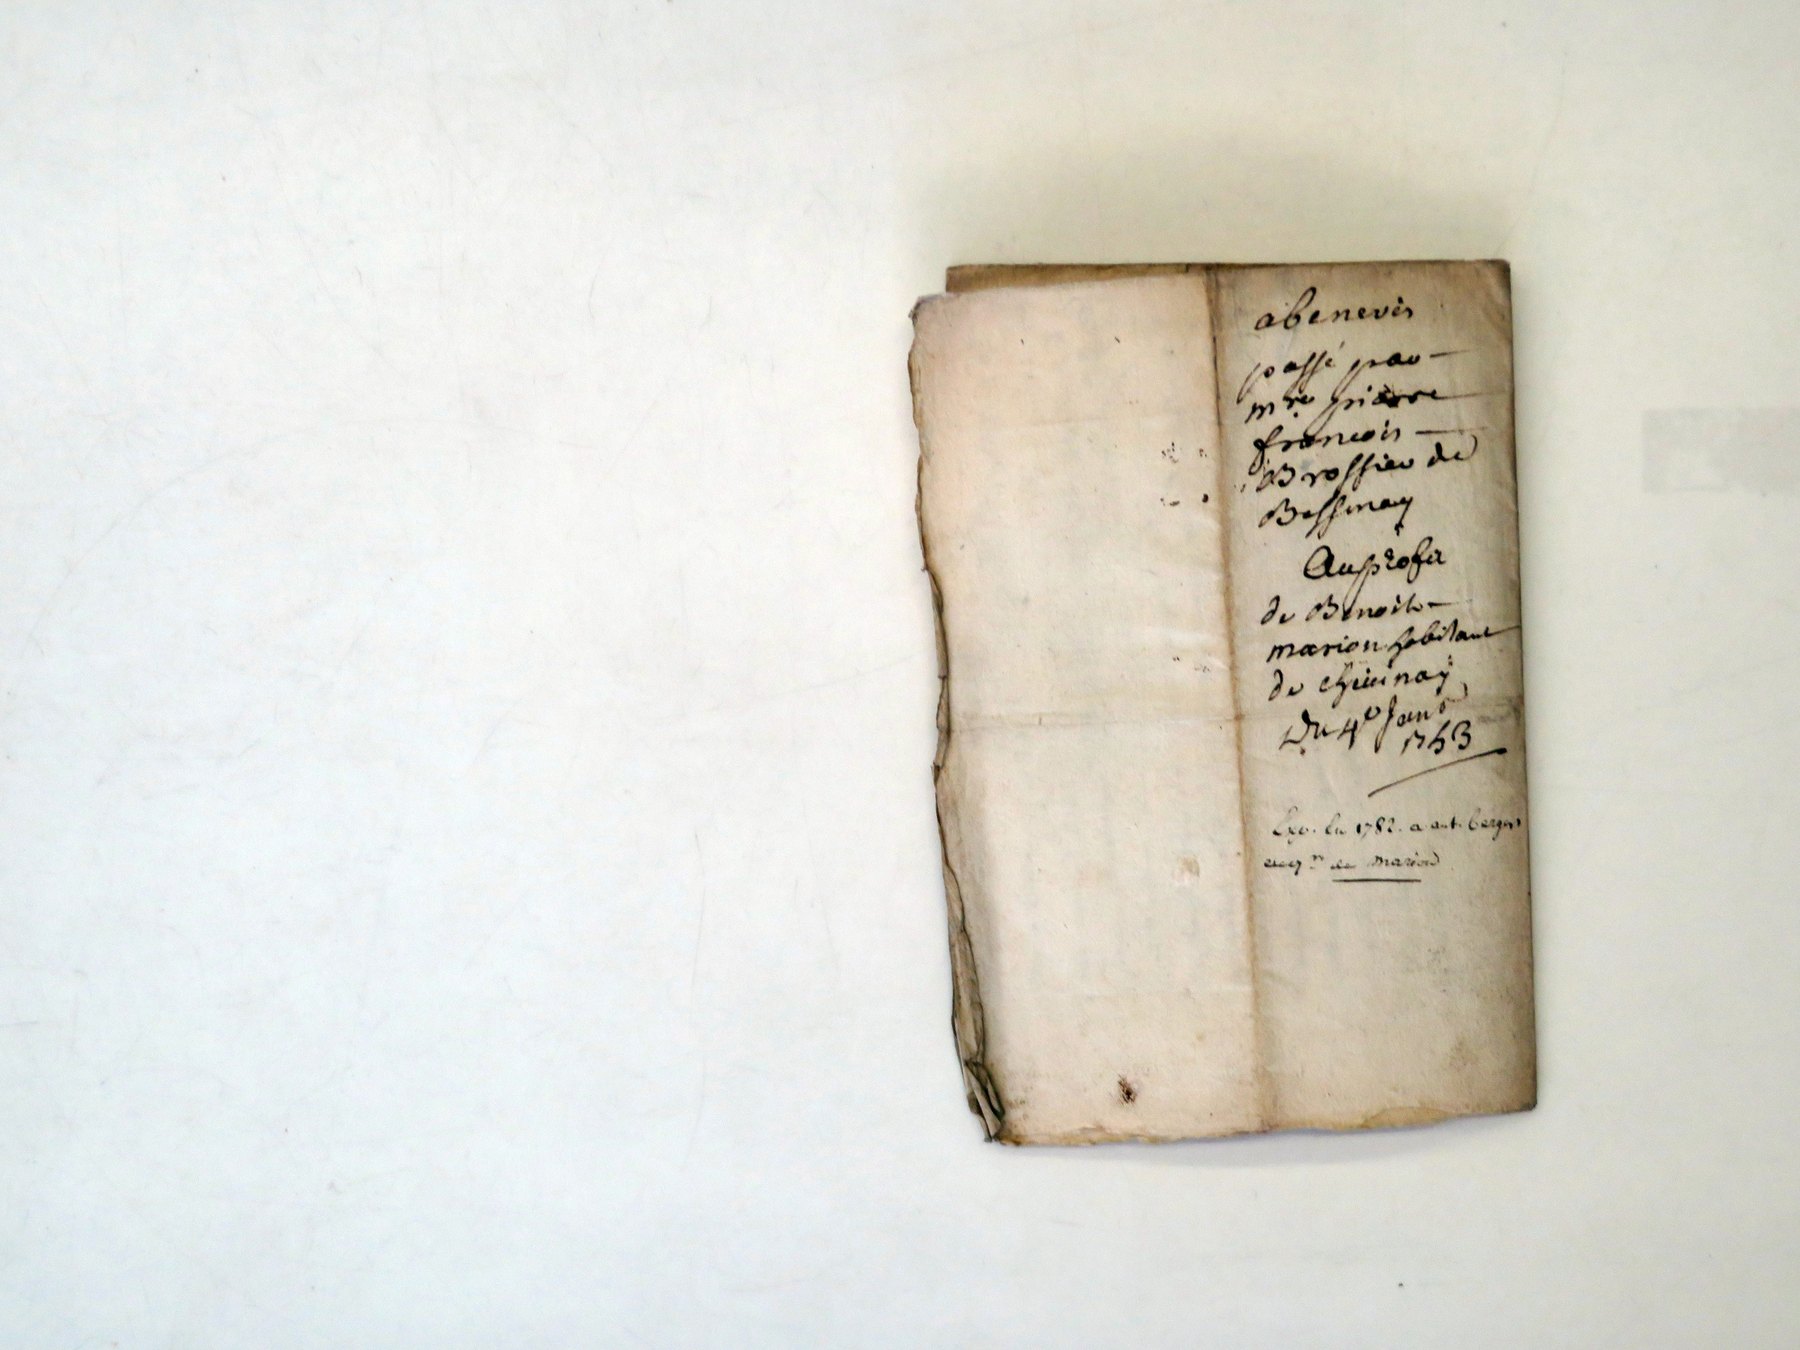 abenevis
passé par
mre pierre
francois
Brossier de
Bessenay
Au profit
de Benoit
marion habitant
de chevinay
Du 4e Janv
1753
Exp. en 1782. a ant. berger
acq.r de marion